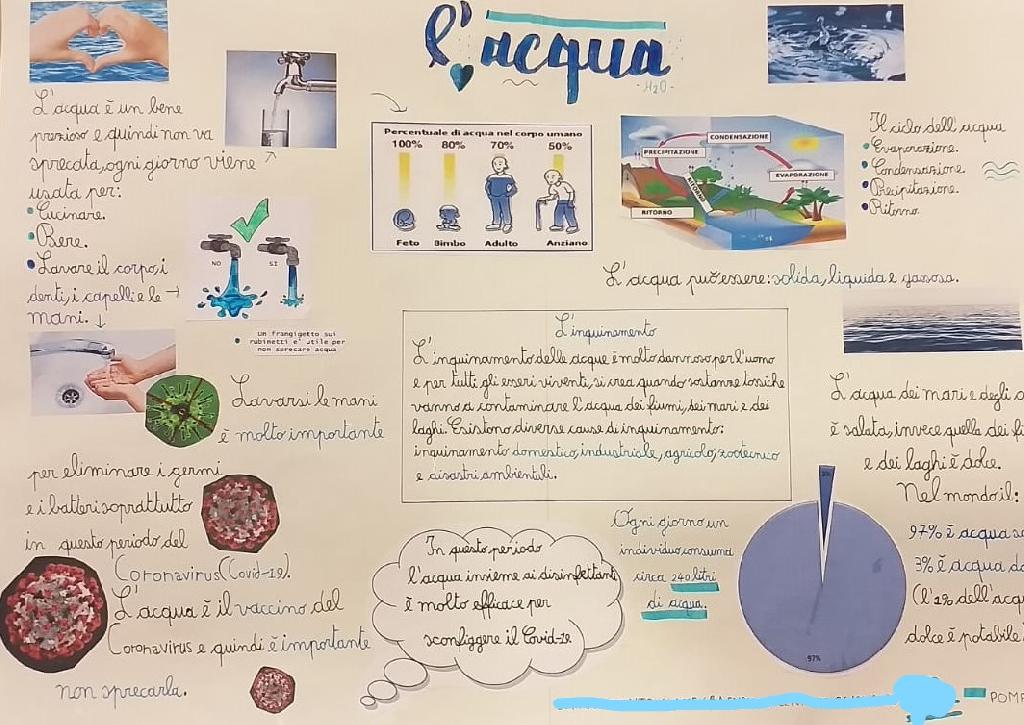 l'acqua
-H2O-
L'acqua è un bene
prezioso e quindi non va
sprecata, ogni giorno viene
usata per:
Cucinare.
Bere.
Lavare il corpo, i
denti, i capelli e le
mani.
NO
SI
Un frangigetto sui
rubinetti e' utile per
non sprecare acqua
Percentuale di acqua nel corpo umano
100% 80% 70% 50%
Feto Bimbo Adulto Anziano
CONDENSAZIONE
PRECIPITAZIONE
EVAPORAZIONE
RITORNO
RITORNO
Il ciclo dell'acqua
Evaporazione.
Condensazione.
Precipitazione.
Ritorno
L'acqua può essere: solida, liquida e gassosa.
Lavarsi le mani
è molto importante
per eliminare i germi
e i batteri soprattutto
in questo periodo del
Coronavirus (Covid-19).
L'acqua è il vaccino del
Coronavirus e quindi è importante
non sprecarla.
L'inquinamento
L'inquinamento delle acque è molto dannoso per l'uomo
e per tutti gli esseri viventi, si crea quando sostanze tossiche
vanno a contaminare l'acqua dei fiumi, dei mari e dei
laghi. Esistono diverse cause di inquinamento:
inquinamento domestico, industriale, agricolo, zootecnico
e disastri ambientali.
In questo periodo
l'acqua insieme ai disinfettanti
è molto efficace per
sconfiggere il Covid-19
Ogni giorno un
individuo consuma
circa 240 litri
di acqua.
L'acqua dei mari e degli
è salata, invece quella dei
e dei laghi è dolce.
Nel mondo il:
97% è acqua
3% è acqua
(l'1% dell'acqua
dolce è potabile
3%
97%